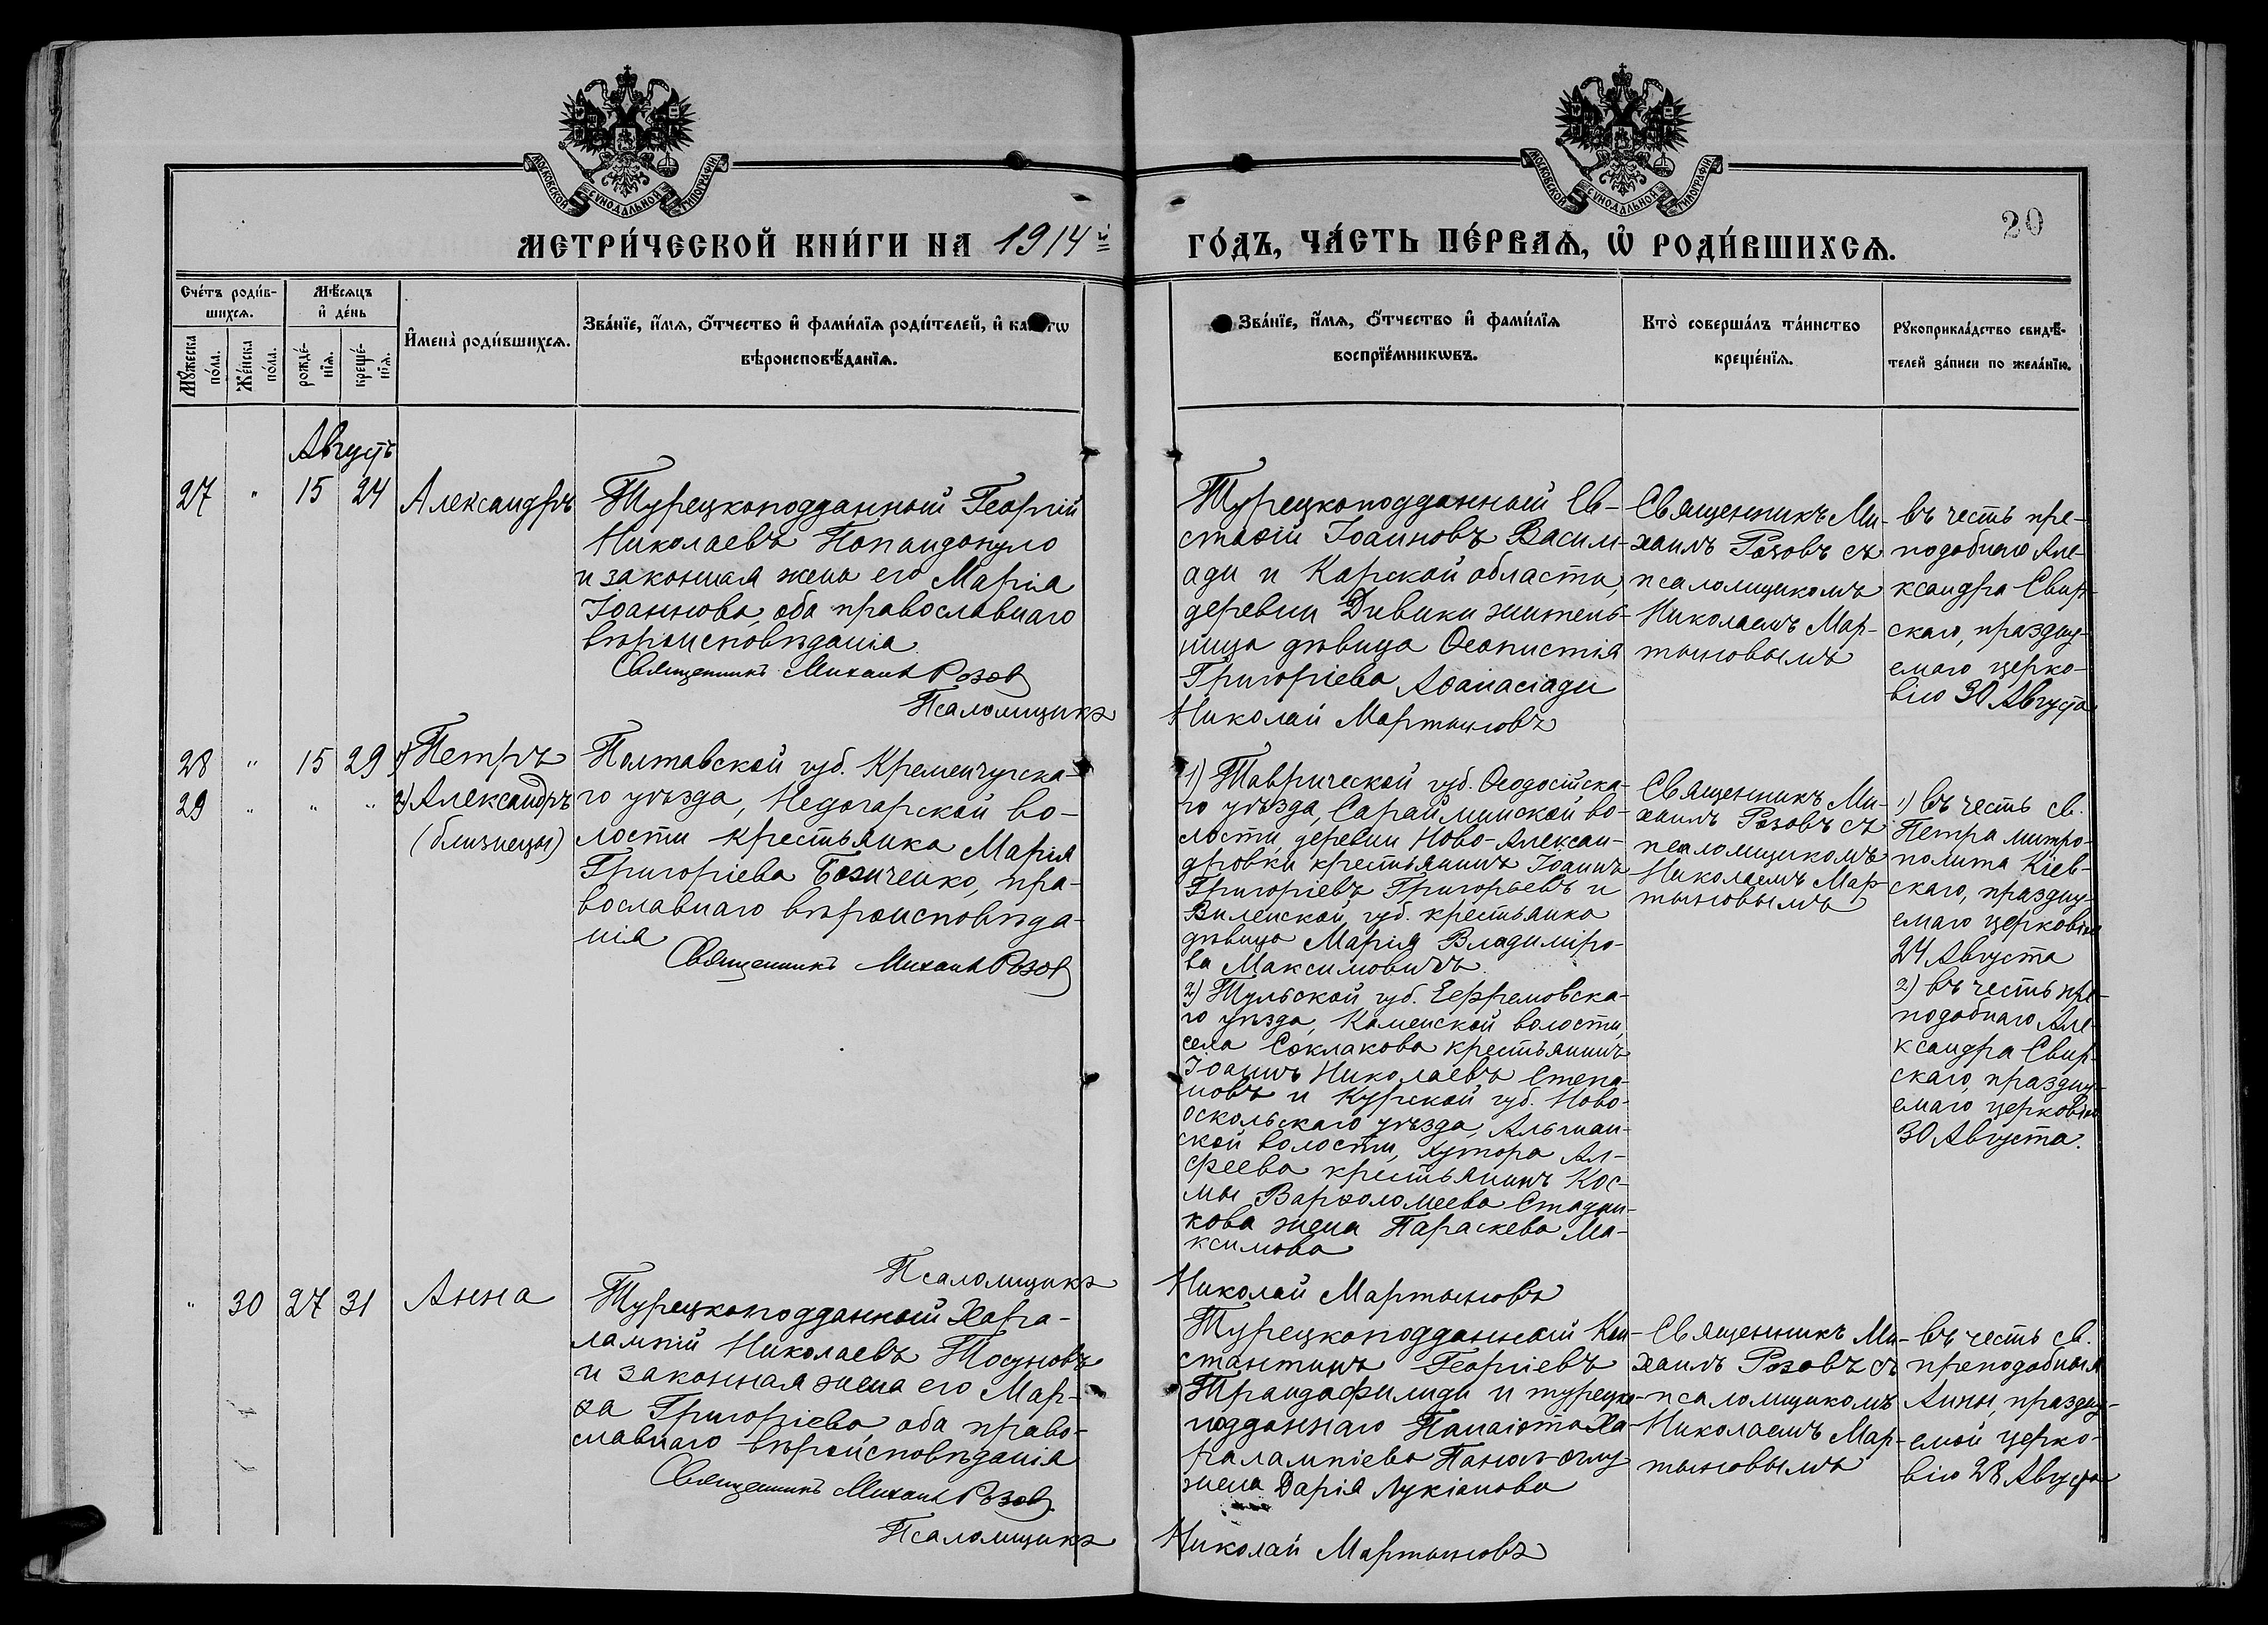 МОСКОВСКОЙ СѴНОДАЛЬНОЙ ТИПОГРАФІИ
МОСКОВСКОЙ СѴНОДАЛЬНОЙ ТИПОГРАФІИ
20
МЕТРИ́ЧЕСКОЙ КНИ́ГИ НА 1914 й
ГО́ДЪ, ЧА́СТЬ ПЕ́РВАѦ, Ѡ҆ РОДИ́ВШИХСѦ.
Счéтъ роди́в-
шихсѧ.
Мꙋ́жеска
по́ла.
Же́нска
по́ла.
Мѣ́сѧцъ
и҆ де́нь
рожде́-
нїѧ.
креще́-
нїѧ.
И҆мена̀ роди́вшихсѧ.
Зва́нїе, и҆́мѧ, ѻ҆́тчество и҆ фами́лїѧ роди́телей, и҆
вѣроисповѣ́данїѧ.
Зва́нїе, и҆́мѧ, ѻ҆́тчество и҆ фами́лїѧ
воспрїе́мникѡвъ.
Кто̀ соверша́лъ та́инство
креще́нїѧ.
Рꙋкоприкла́дство свидѣ́-
телей за́писи по жела́нїю.
Августъ
27 " 15 24 Александръ
Турецкоподданный Георгій
Николаевъ Попандопуло
и законная жена его Марія
Іоаннова, оба православнаго
вѣроисповѣданія.
Священникъ Михаилъ Розов
Псаломщикъ
Турецкоподданный Ев-
стаѳій Іоанновъ Васили-
ади и Карской области,
деревни Дивики житель-
ница дѣвица Ѳеопистія
Григоріева Аѳанасіади
Николай Мартыновъ
Священникъ Ми-
хаилъ Розовъ съ
псаломщикомъ
Николаемъ Мар-
тыновымъ
въ честь пре-
подобнаго Але-
ксандра Свир-
скаго, праздну-
емаго церко-
вію 30 Августа
28 " 15 29 1) Петръ
29 " " " 2) Александръ
(близнецы)
Полтавской губ. Кременчугска-
го уѣзда, Недогарской во-
лости крестьянка Марія
Григоріева Безиченко, пра-
вославнаго вѣроисповѣда-
нія
Священникъ Михаилъ Розов
Псаломщикъ
1) Таврической губ. Ѳеодосійска-
го уѣзда, Сарайминской во-
лости, деревни Ново-Алексан-
дровки крестьянинъ Іоаннъ
Григоріевъ Григорьевъ и
Виленской губ. крестьянка
дѣвица Марія Владиміро-
ва Максимовичъ.
2) Тульской губ. Ефремовска-
го уѣзда, Каменской волости,
села Соклакова крестьянинъ
Іоаннъ Николаевъ Степа-
новъ и Курской губ. Ново-
оскольскаго уѣзда,
ской волости, хутора Ал-
феева крестьянинъ Кос-
мы Варѳоломеева Стадни-
кова жена Параскева Ма-
ксимова
Николай Мартыновъ
Священникъ Ми-
хаилъ Розовъ съ
псаломщикомъ
Николаемъ Мар-
тыновымъ
1) въ честь св.
Петра митро-
полита Кіев-
скаго, праздну-
емаго церковію
24 Августа
2) въ честь пре-
подобнаго Але-
ксандра Свир-
скаго, праздну-
емаго церковію
30 Августа.
" 30 27 31 Анна
Турецкоподданный Хара-
лампій Николаевъ Тосуновъ
и законная жена его Мар-
ѳа Григоріева, оба право-
славнаго вѣроисповѣданія
Священникъ Михаилъ Розов
Псаломщикъ
Турецкоподданный Кон-
стантинъ Георгіевъ
Трандафилиди и турецко-
подданнаго Панаіота Ха-
рампіева
жена Дарія Лукіанова
Николай Мартыновъ
Священникъ Ми-
хаилъ Розовъ съ
псаломщикомъ
Николаемъ Мар-
тыновымъ
въ честь св.
преподобныя
Анны, праздну-
емой церко-
вію 28 Августа